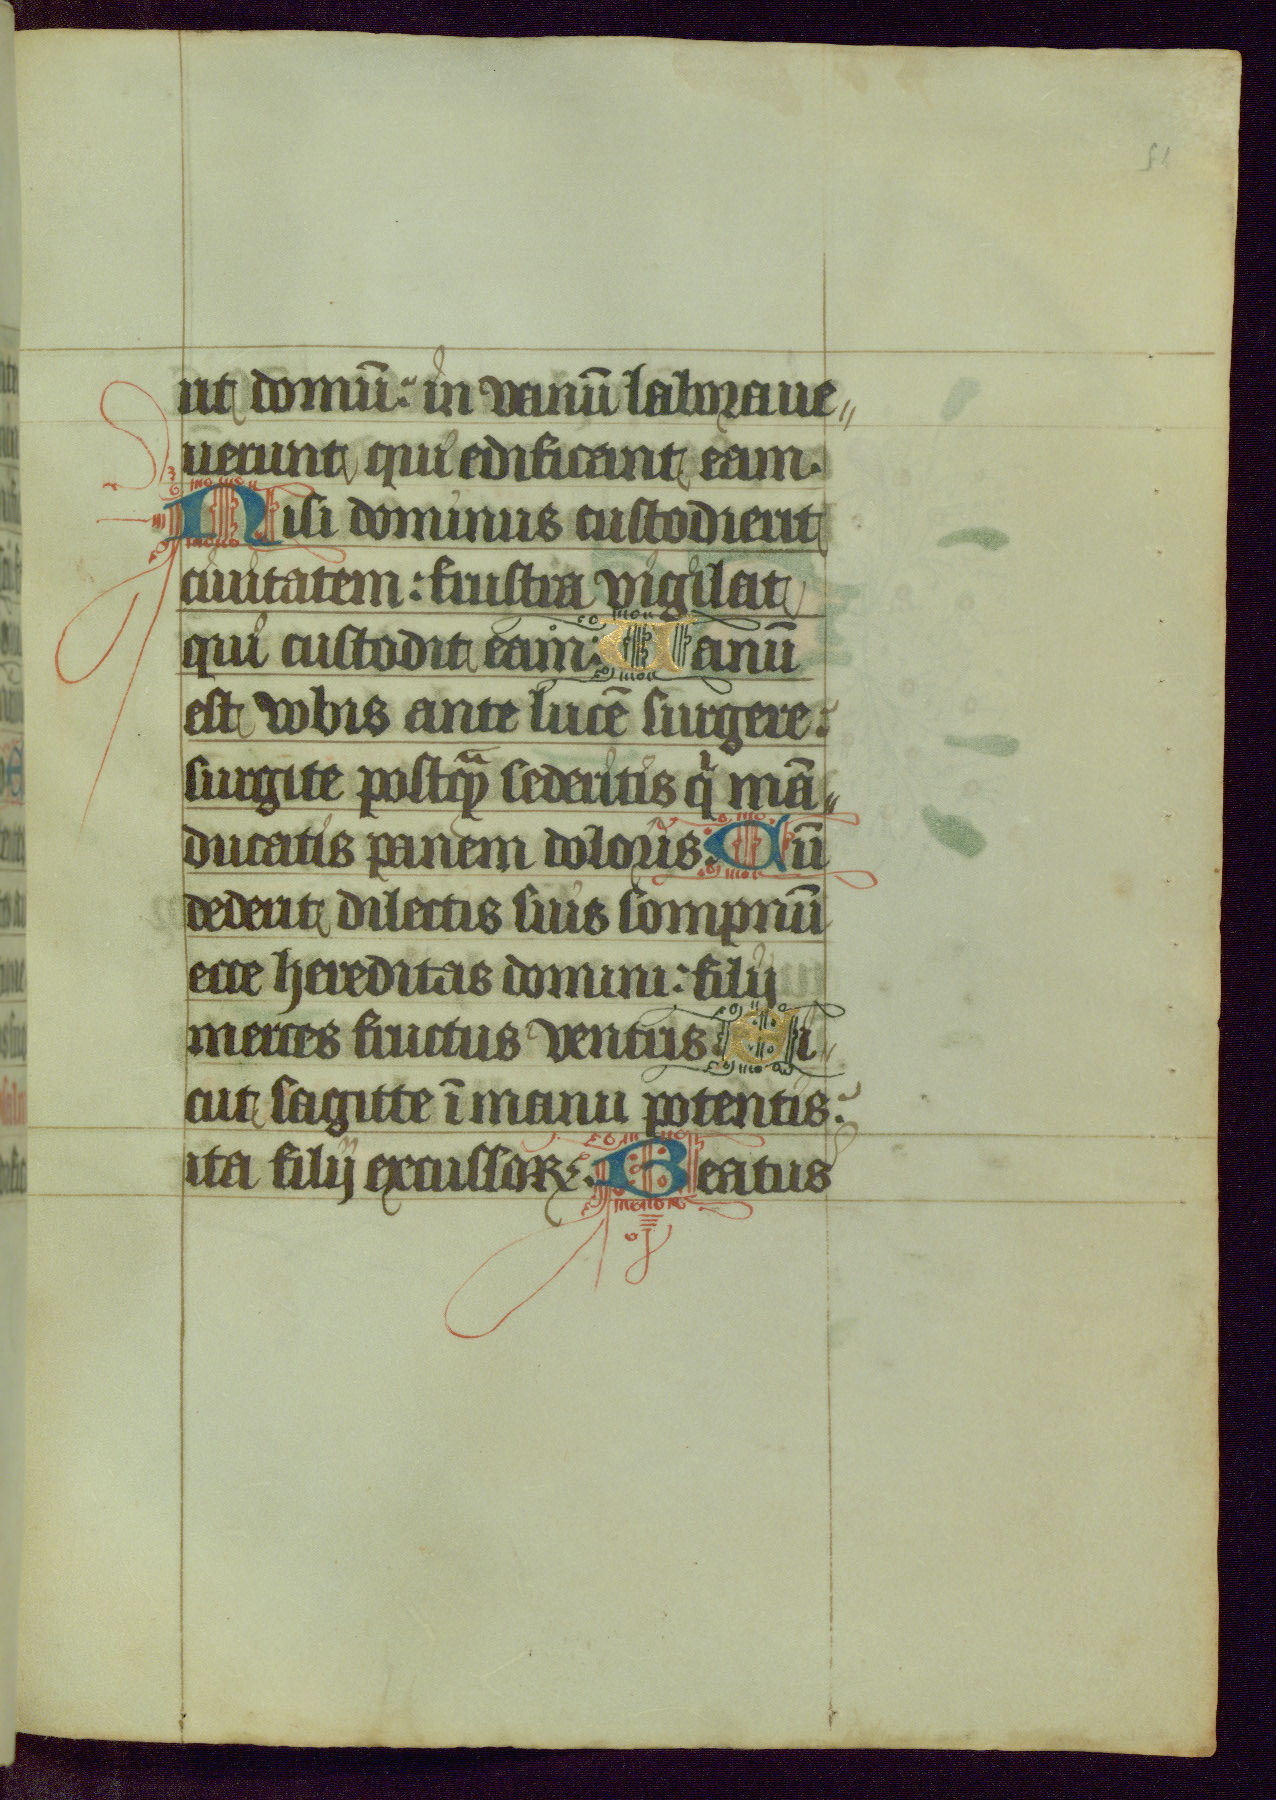 rit domū: in vanū laboraue〃
uerunt qui edificant eam.
Nisi dominus custodierit
ciuitatem: frustra vigilat
qui custodit eam: Uanū
est vobis ante lucē surgere:
surgite postqᷓ sederitis q̇ mā〃
ducatis panem doloris: Cū
dederit dilectis suis sompnū
ecce hereditas domini: filij
merces fructus ventris: Si〃
cut sagitte ī manu potentis:
ita filij excussoꝝ: Beatus